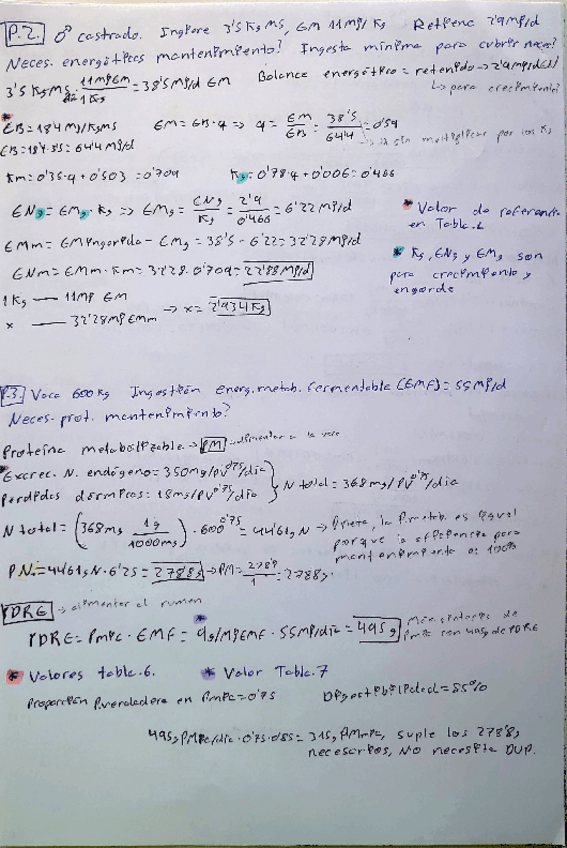 P.2. ♂ castrado. Ingiere 3'5 Kg MS, EM 11 MJ/Kg Retiene 2'9 MJ/d
Neces. energéticas mantenimiento? Ingesta mínima para cubrir neces?
3'5 KgMS · 11MJEM / 1Kg = 38'5 MJ/d EM Balance energético = retenido → 2'9 MJ/d
↳ para crecimiento
* EB = 18'4 MJ/KgMS EM = EB · q ⇒ q = EM / EB = 38'5 / 64'4 = 0'59
EB = 18'4 · 3'5 = 64'4 MJ/d sin multiplicar por los Kg
Km = 0'35 · q + 0'503 = 0'709 Kg = 0'78 · q + 0'006 = 0'466
ENg = EMg · Kg ⇒ EMg = ENg / Kg = 2'9 / 0'466 = 6'22 MJ/d * Valor de referencia
en Tabla.
EMm = EM ingerida - EMg = 38'5 - 6'22 = 32'28 MJ/d * Kg, ENg y EMg son
para crecimiento y
engorde
ENm = EMm · Km = 32'28 · 0'709 = 22'88 MJ/d
1 Kg — 11 MJ EM
x — 32'28 MJ EMm → x = 2'934 Kg
P.3. Vaca 600 Kg Ingestión energ. metab. fermentable (EMF) = 55 MJ/d
Neces. prot. mantenimiento?
Proteína metabolizable → PM → alimentar a la vaca
* Excrec. N. endógeno = 350 mg/PV^0'75/día
Perdidas dérmicas = 18 mg/PV^0'75/día } N total = 368 mg/PV^0'75/día
N total = (368 mg 1g / 1000mg) · 600^0'75 = 44'61 g N → la P. metab. es igual
porque la eficiencia para
mantenimiento es 100%
PN = 44'61 g N · 6'25 = 278'8 g → PM = 278'8 / 1 = 278'8 g.
PDRE → alimentar el rumen
PDRE = PmPc · EMF = 9g/MJEMF · 55MJ/día = 495 g
con 495g de PDRE
* Valores tabla.6. * Valor Tabla.7
Proporción P. verdadera en PmPc = 0'75 Digestibilidad = 85%
495g PMPc/día · 0'75 · 0'85 = 315 g PMmPc, suple los 278'8 g
necesarios, NO necesita DUP.